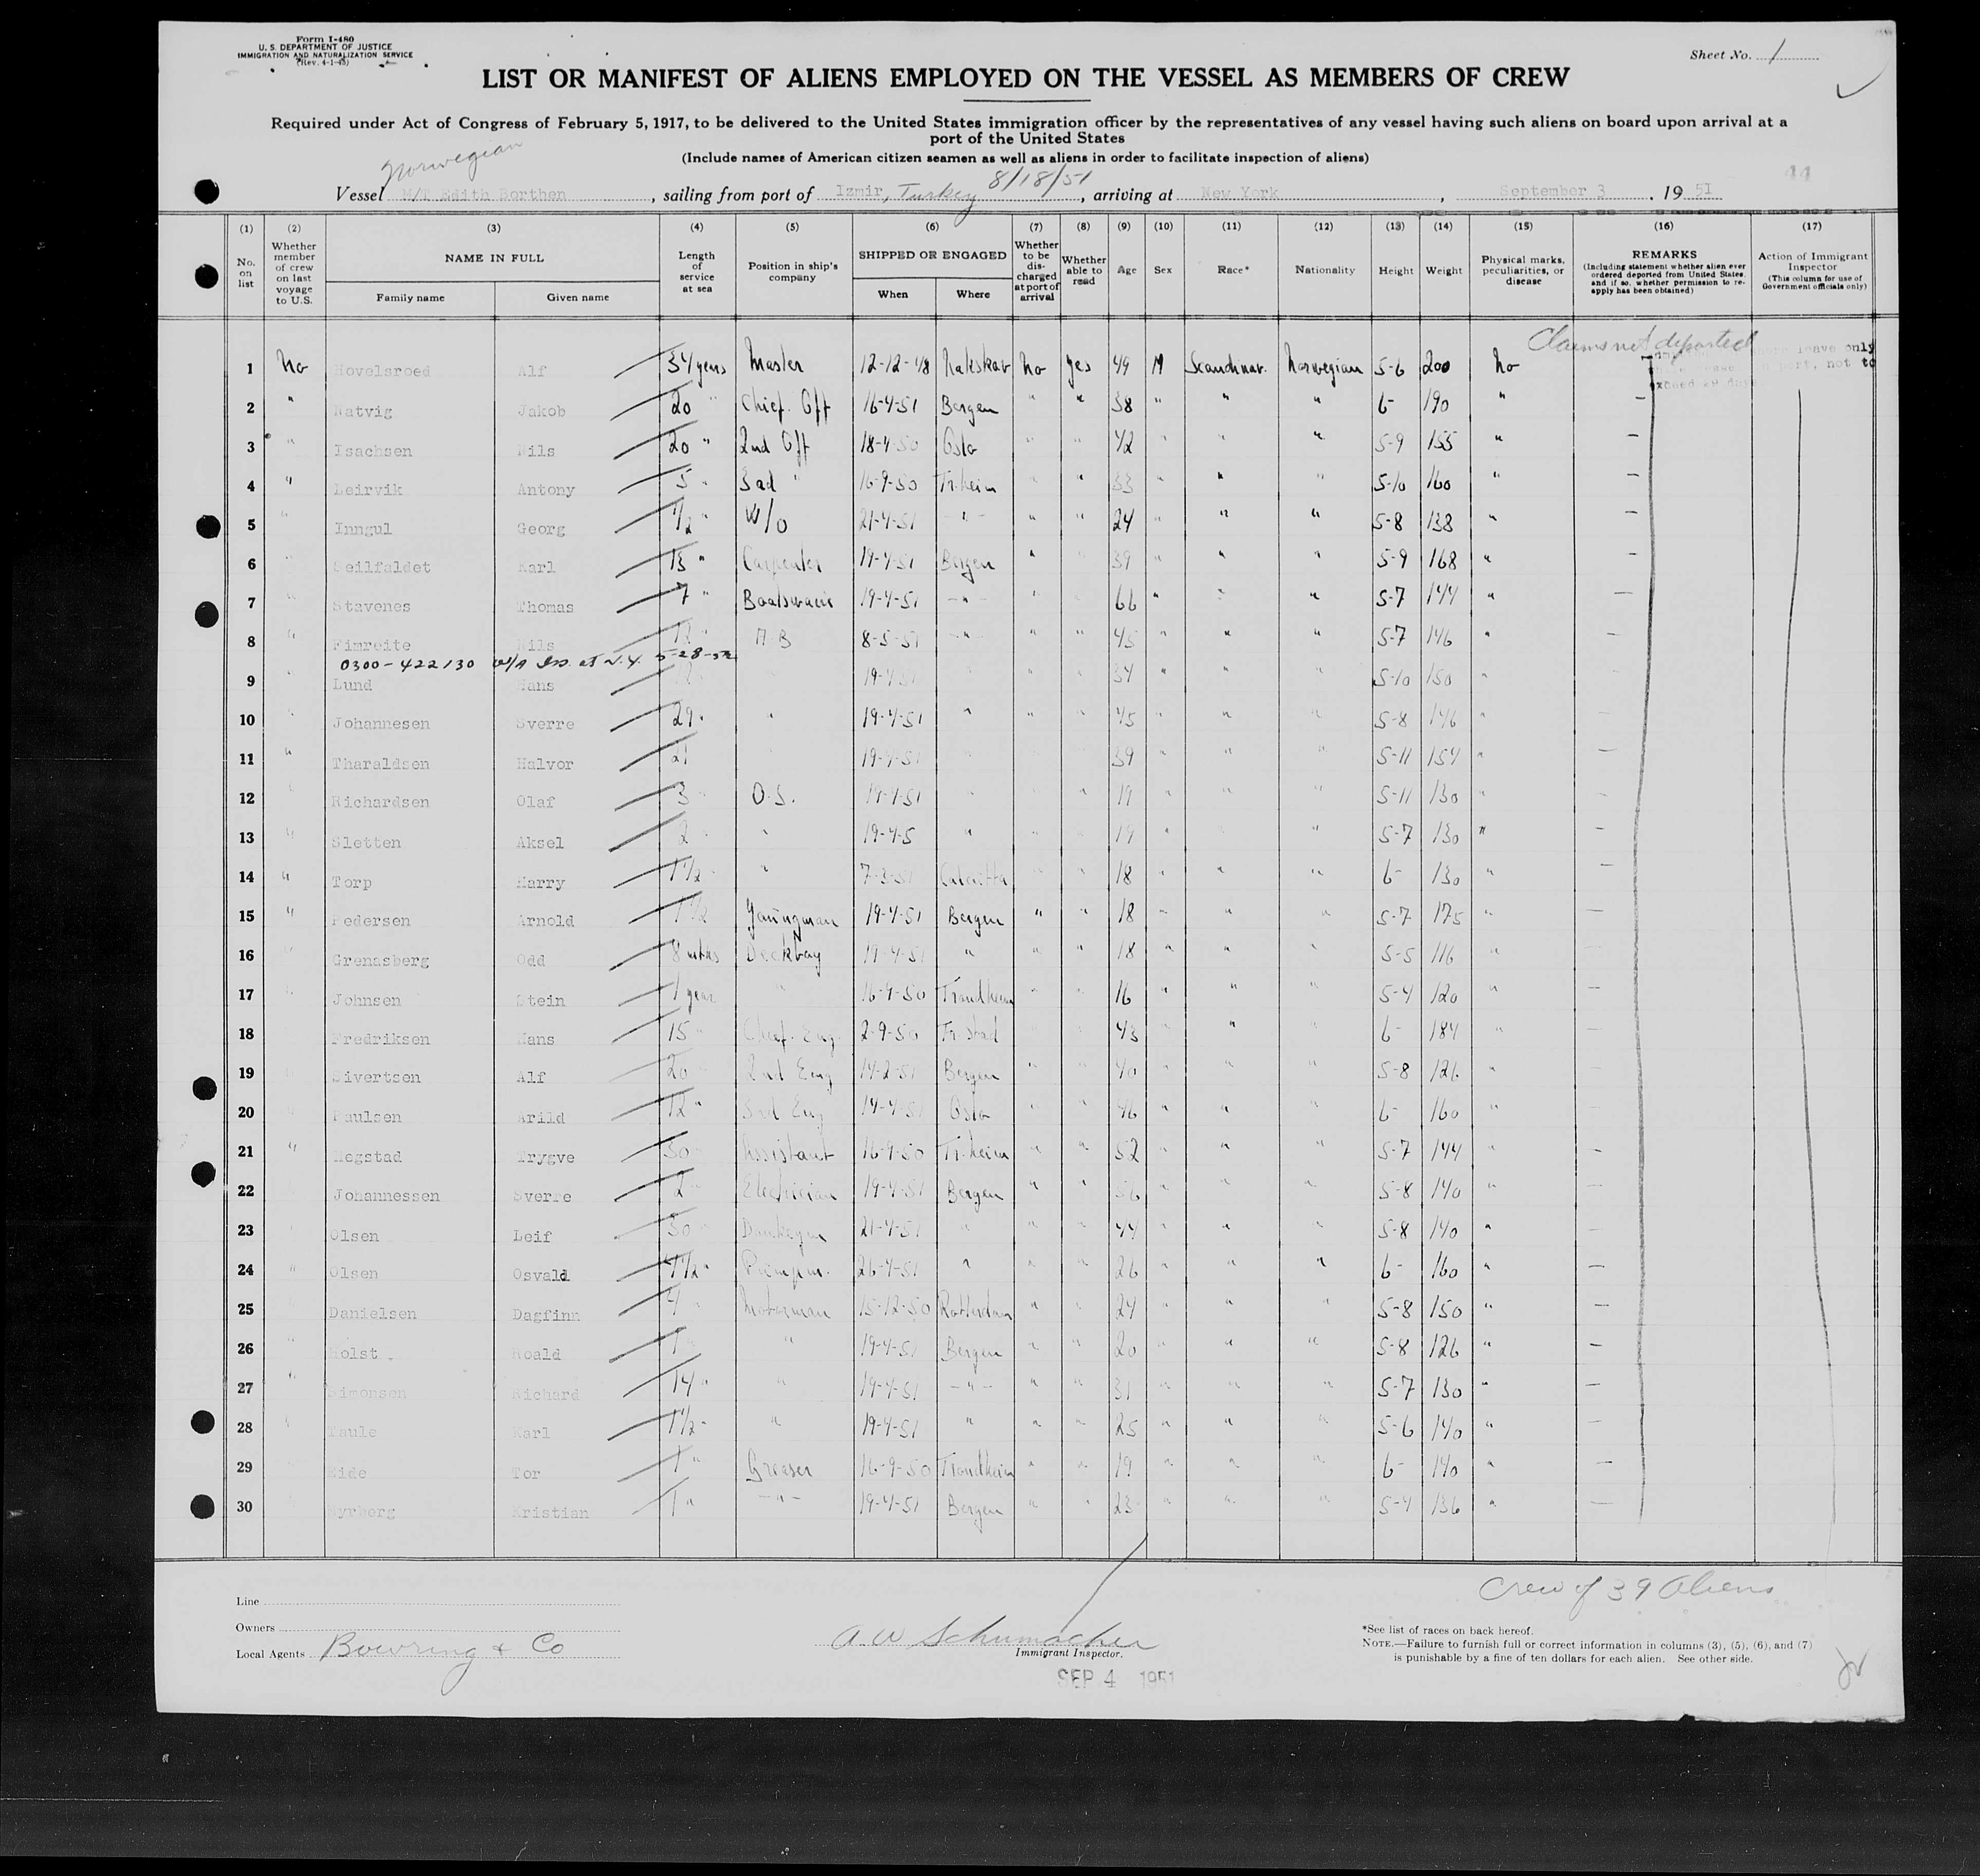 Form I-480
U. S. DEPARTMENT OF JUSTICE
IMMIGRATION AND NATURALIZATION SERVICE
(Rev. 4-1-45)
Sheet No. 1
LIST OR MANIFEST OF ALIENS EMPLOYED ON THE VESSEL AS MEMBERS OF CREW
Required under Act of Congress of February 5, 1917, to be delivered to the United States immigration officer by the representatives of any vessel having such aliens on board upon arrival at a
port of the United States
(Include names of American citizen seamen as well as aliens in order to facilitate inspection of aliens)
Norwegian
8/18/51
44
Vessel M/T Edith Borthen, sailing from port of Izmir, Turkey, arriving at New York, September 3, 1951
(1) (2) (3) (4) (5) (6) (7) (8) (9) (10) (11) (12) (13) (14) (15) (16) (17)
No. on list
Whether member of crew on last voyage to U.S.
NAME IN FULL
Family name
Given name
Length of service at sea
Position in ship's company
SHIPPED OR ENGAGED
When
Where
Whether to be discharged at port of arrival
Whether able to read
Age
Sex
Race*
Nationality
Height
Weight
Physical marks, peculiarities, or disease
REMARKS
(Including statement whether alien ever ordered deported from United States, and if so, whether permission to reapply has been obtained)
Action of Immigrant Inspector
(This column for use of Government officials only)
Claims not deported
leave only
port, not to
exceed 29 days
1 No Hovelsroed Alf 34 years Master 12-12-48 Nakskov No yes 49 M Scandinav. Norwegian 5-6 200 No
2 " Natvig Jakob 20 " Chief. Off 16-4-51 Bergen " " 38 " " " 6- 190 " —
3 " Isachsen Nils 20 " 2nd Off 18-4-50 Oslo " " 42 " " " 5-9 155 " —
4 " Leirvik Antony 5 " 3ad " 16-9-50 Tr.heim " " 33 " " " 5-10 160 " —
5 " Inngul Georg 1/2 " W/O 21-4-51 -"- " " 24 " " " 5-8 138 " —
6 " Seilfaldet Karl 13 " Carpenter 19-4-51 Bergen " " 39 " " " 5-9 168 " —
7 " Stavenes Thomas 7 " Boatswain 19-4-51 -"- " " 66 " " " 5-7 144 " —
8 " Fimreite Nils 12 " A B 8-5-51 -"- " " 45 " " " 5-7 146 " —
0300-422130 W/A Iss. at N.Y. 5-28-52
9 " Lund Hans " 19-4-51 " " " 34 " " " 5-10 150 " —
10 " Johannesen Sverre 29 " " 19-4-51 " " " 45 " " " 5-8 146 " —
11 " Tharaldsen Halvor 21 19-4-51 " 39 " " " 5-11 154 " —
12 " Richardsen Olaf 3 " O.S. 19-4-51 " " " 19 " " " 5-11 130 " —
13 " Sletten Aksel 2 " " 19-4-5 " " " 19 " " 5-7 130 " —
14 " Torp Harry 1 1/2 " " 7-3-51 Calcutta " " 18 " " " 6- 130 " —
15 " Pedersen Arnold 1 1/2 Youngman 19-4-51 Bergen " " 18 " " " 5-7 175 " —
16 " Grenasberg Odd 8 mths Deckboy 19-4-51 " " " 18 " " " 5-5 116 " —
17 " Johnsen Stein 1 year " 16-9-50 Trondheim " " 16 " " " 5-4 120 " —
18 Fredriksen Hans 15 " Chief. Eng. 2-9-50 Fr.stad " 43 " " " 6- 184 " —
19 " Sivertsen Alf 20 2nd Eng 14-2-51 Bergen " " 40 " " " 5-8 126 " —
20 " Paulsen Arild 12 " 3rd Eng 19-4-51 Oslo " " 46 " " " 6- 160 " —
21 " Hegstad Trygve 30 Assistant 16-9-50 Tr.heim " " 52 " " " 5-7 144 " —
22 Johannessen Sverre 2 " Electrician 19-4-51 Bergen " " 56 " " " 5-8 140 " —
23 Olsen Leif 30 Donkeym 21-4-51 " " " 44 " " " 5-8 140 " —
24 " Olsen Osvald 4 1/2 " Pumpm. 26-4-51 " " " 26 " " " 6- 160 " —
25 Danielsen Dagfinn 4 " Motorman 15-12-50 Rotterdam " " 24 " " " 5-8 150 " —
26 " Holst Roald 1 " 19-4-51 Bergen " " 20 " " " 5-8 126 " —
27 " Simonsen Richard 14 " " 19-4-51 -"- " " 31 " " " 5-7 130 " —
28 " Taule Karl 1 1/2 " " 19-4-51 " " " 25 " " " 5-6 140 " —
29 Eide Tor 1 " Greaser 16-9-50 Trondheim " " 19 " " " 6- 140 " —
30 Myrberg Kristian 1 " -"- 19-4-51 Bergen " " 23 " " " 5-4 136 " —
Crew of 39 Aliens
Line
Owners
Local Agents Bowring & Co
A. W. Schumacher
Immigrant Inspector.
SEP 4 1951
*See list of races on back hereof.
NOTE.—Failure to furnish full or correct information in columns (3), (5), (6), and (7)
is punishable by a fine of ten dollars for each alien. See other side.